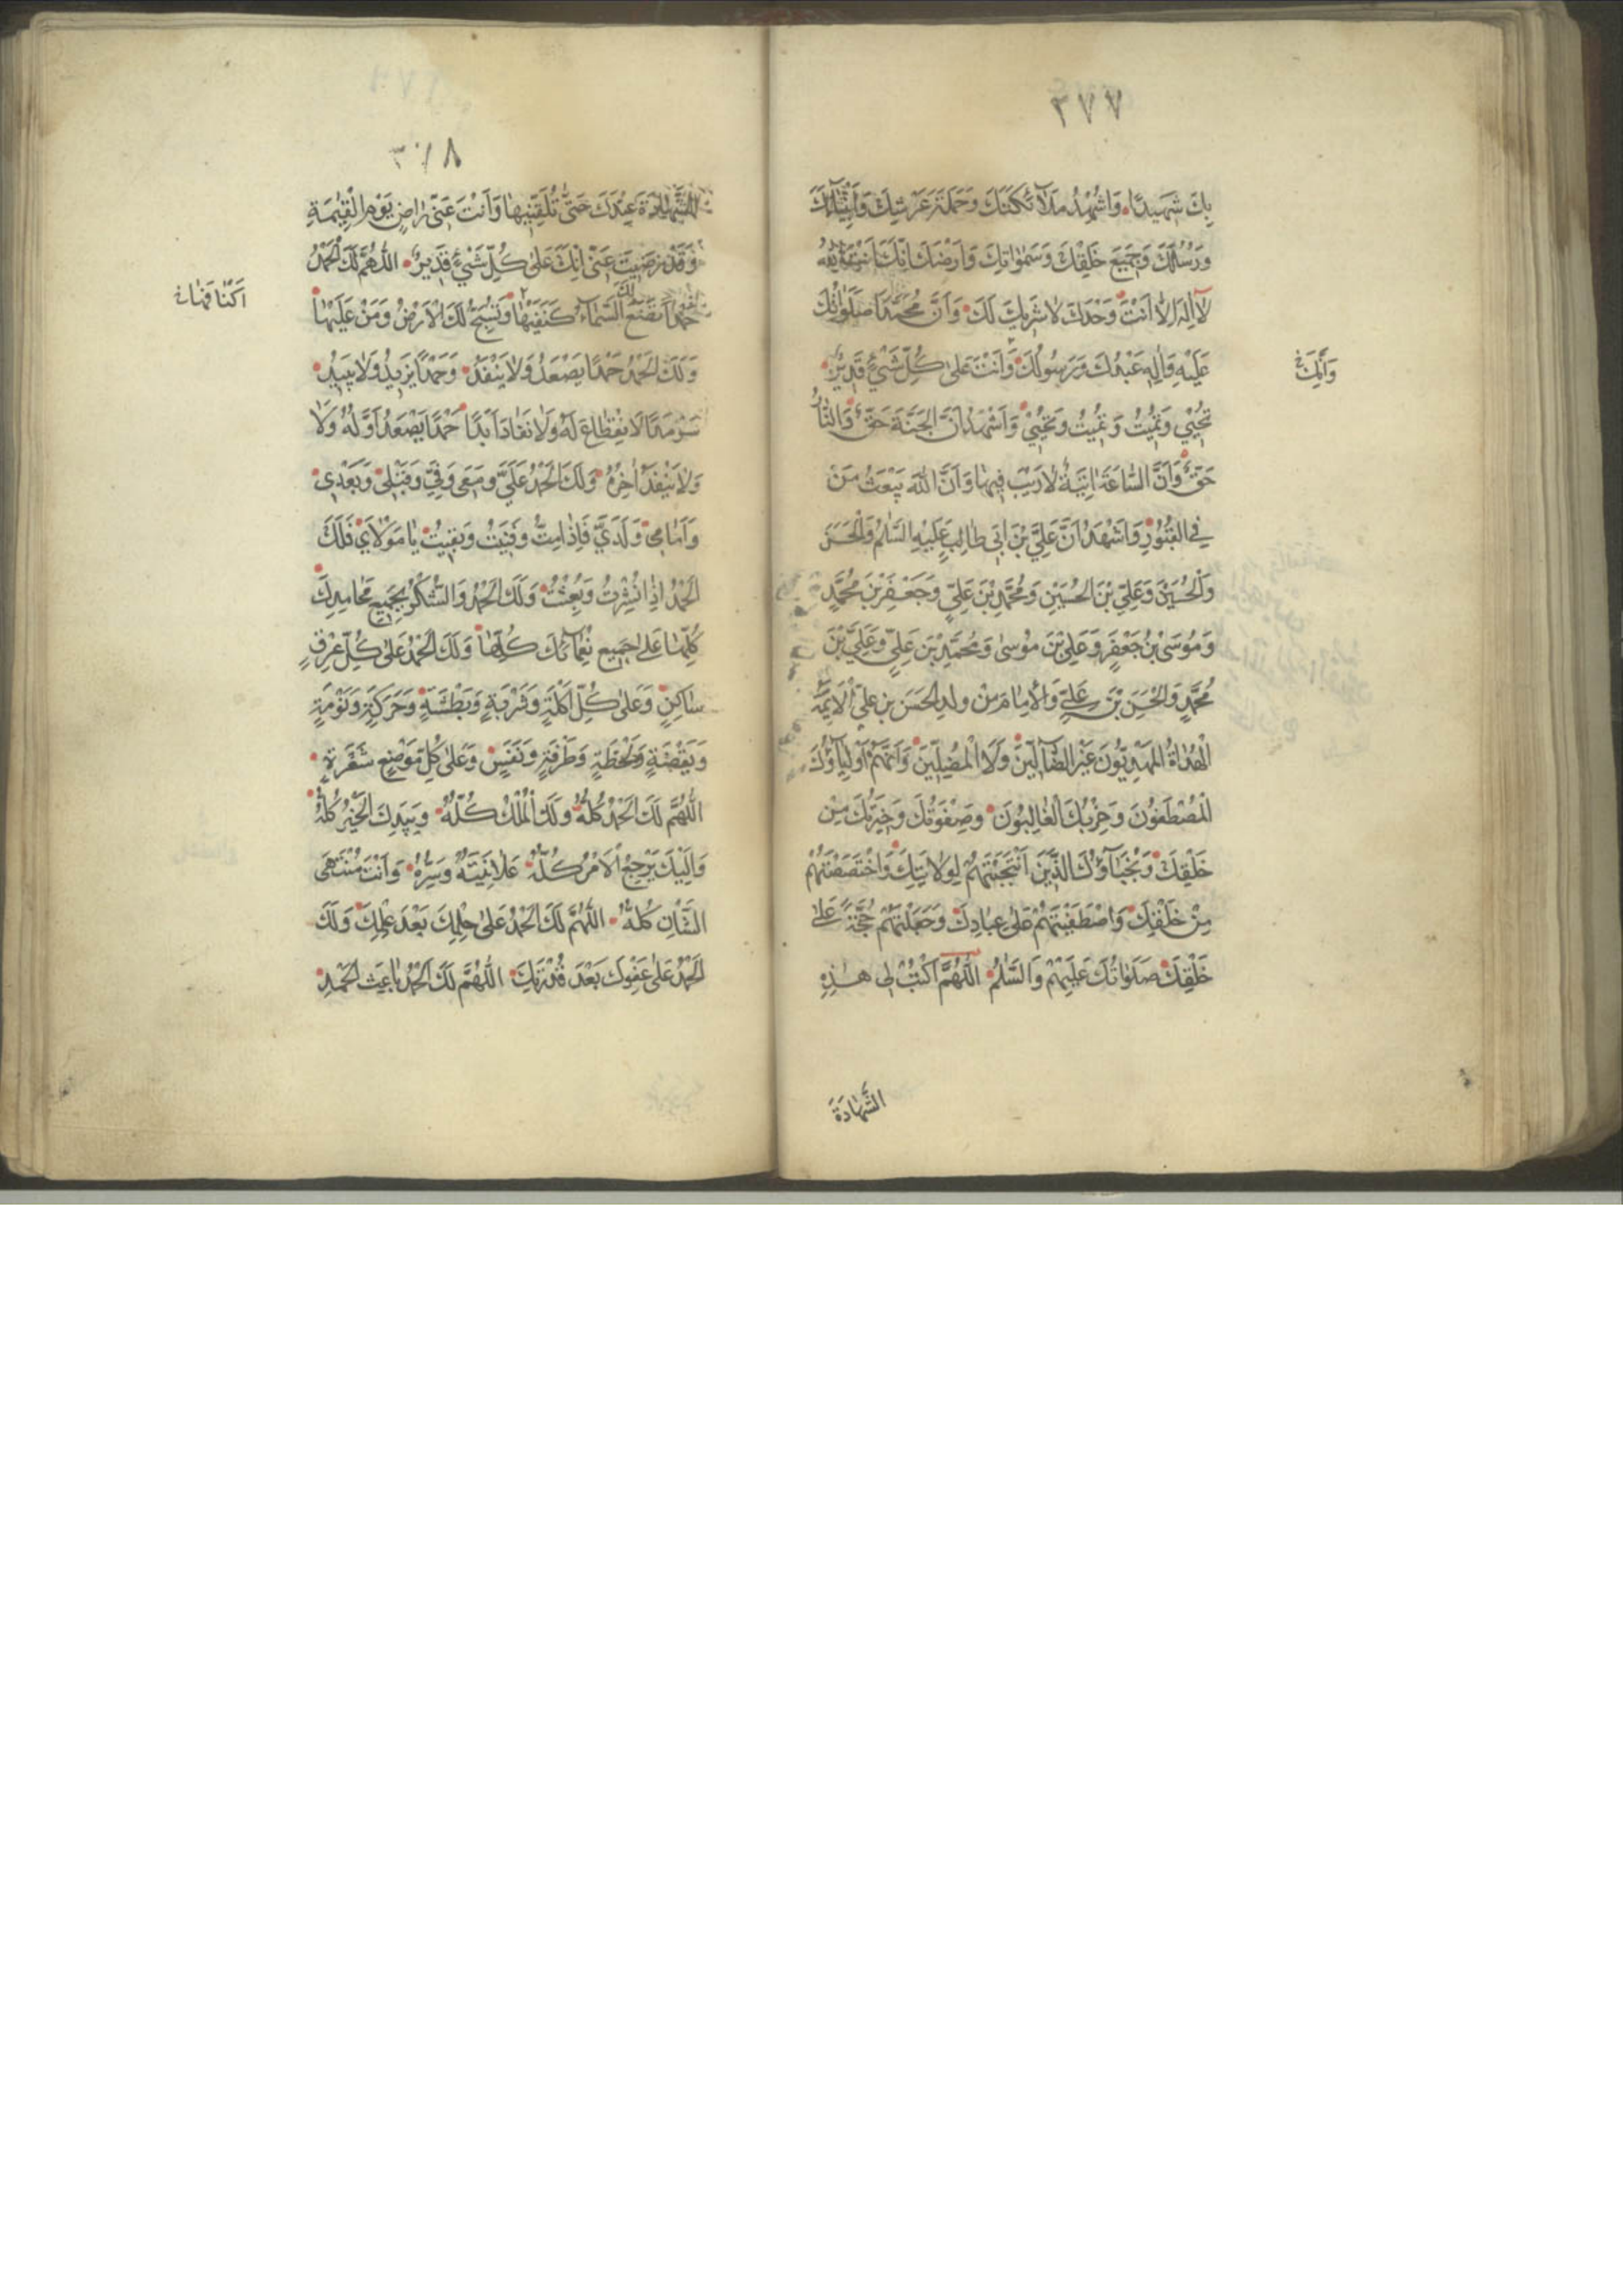 ٣٧٧
بِكَ شَهِيدًا وَاُشْهِدُ مَلاٰئِكَتَكَ وَحَمَلَةَ عَرْشِكَ وَاَنْبِيٰآءَكَ
وَرُسُلَكَ وَجَمِيعَ خَلْقِكَ وَسَمٰوٰاتِكَ وَاَرْضَكَ اِنَّكَ اَنْتَ اللّٰهُ
لاٰ اِلٰهَ اِلاّٰ اَنْتَ وَحْدَكَ لاٰ شَرِيكَ لَكَ وَاَنَّ مُحَمَّدًا صَلَوٰاتُكَ
عَلَيْهِ وَاٰلِهِ عَبْدُكَ وَرَسُولُكَ وَاَنْتَ عَلىٰ كُلِّ شَيْءٍ قَدِيرٌ
وَاَنَّكَ
تُحْيِي وَتُمِيتُ وَتُمِيتُ وَتُحْيِي وَاَشْهَدُ اَنَّ الْجَنَّةَ حَقٌّ وَالنّٰارُ
حَقٌّ وَاَنَّ السّٰاعَةَ اٰتِيَةٌ لاٰ رَيْبَ فِيهٰا وَاَنَّ اللّٰهَ يَبْعَثُ مَنْ
فِي الْقُبُورِ وَاَشْهَدُ اَنَّ عَلِيَّ بْنَ اَبِي طٰالِبٍ عَلَيْهِ السَّلٰمُ وَالْحَسَنَ
وَالْحُسَيْنَ وَعَلِيَّ بْنَ الْحُسَيْنِ وَمُحَمَّدَ بْنَ عَلِيٍّ وَجَعْفَرَ بْنَ مُحَمَّدٍ
وَمُوسَى بْنَ جَعْفَرٍ وَعَلِيَّ بْنَ مُوسىٰ وَمُحَمَّدَ بْنَ عَلِيٍّ وَعَلِيَّ بْنَ
مُحَمَّدٍ وَالْحَسَنَ بْنَ عَلِيٍّ وَالْاِمٰامَ مِنْ وَلَدِ الْحَسَنِ بْنِ عَلِيٍّ الْاَئِمَّةُ
الْهُدٰاةُ الْمَهْدِيُّونَ غَيْرُ الضّٰآلِّينَ وَلَا الْمُضِلِّينَ وَاَنَّهُمْ اَوْلِيٰآؤُكَ
الْمُصْطَفَوْنَ وَحِزْبُكَ الْغٰالِبُونَ وَصِفْوَتُكَ وَخِيَرَتُكَ مِنْ
خَلْقِكَ وَنُجَبٰآؤُكَ الَّذِينَ انْتَجَبْتَهُمْ لِوِلاٰيَتِكَ وَاخْتَصَصْتَهُمْ
مِنْ خَلْقِكَ وَاصْطَفَيْتَهُمْ عَلىٰ عِبٰادِكَ وَجَعَلْتَهُمْ حُجَّةً عَلىٰ
خَلْقِكَ صَلَوٰاتُكَ عَلَيْهِمْ وَالسَّلٰمُ اَللّٰهُمَّ اكْتُبْ لِي هٰذِهِ
الشَّهٰادَةَ
٣٧٨
الشَّهٰادَةَ عِنْدَكَ حَتّىٰ تُلَقِّنِيهٰا وَاَنْتَ عَنّي رٰاضٍ يَوْمَ الْقِيٰمَةِ
وَقَدْ رَضِيتَ عَنّي اِنَّكَ عَلىٰ كُلِّ شَيْءٍ قَدِيرٌ اَللّٰهُمَّ لَكَ الْحَمْدُ
حَمْدًا تَضَعُ لَكَ السَّمٰآءُ كَنَفَيْهٰا وَتُسَبِّحُ لَكَ الْاَرْضُ وَمَنْ عَلَيْهٰا
وَلَكَ الْحَمْدُ حَمْدًا يَصْعَدُ وَلاٰ يَنْفَدُ وَحَمْدًا يَزِيدُ وَلاٰ يَبِيدُ
سَرْمَدًا لاَ انْقِطٰاعَ لَهُ وَلاٰ نَفٰادَ اَبَدًا حَمْدًا يَصْعَدُ اَوَّلُهُ وَلاٰ
وَلاٰ يَنْفَدُ اٰخِرُهُ وَلَكَ الْحَمْدُ عَلَيَّ وَمَعِي وَفِيَّ وَقَبْلِي وَبَعْدِي
وَاَمٰامِي وَلَدَيَّ فَاِذٰا مِتُّ وَفَنِيتُ وَبَقِيتُ يٰا مَوْلاٰيَ فَلَكَ
الْحَمْدُ اِذٰا نُشِرْتُ وَبُعِثْتُ وَلَكَ الْحَمْدُ وَالشُّكْرُ بِجَمِيعِ مَحٰامِدِكَ
كُلِّهٰا عَلىٰ جَمِيعِ نَعْمٰآئِكَ كُلِّهٰا وَلَكَ الْحَمْدُ عَلىٰ كُلِّ عِرْقٍ
سٰاكِنٍ وَعَلىٰ كُلِّ اَكْلَةٍ وَشَرْبَةٍ وَبَطْشَةٍ وَحَرَكَةٍ وَنَوْمَةٍ
وَيَقْظَةٍ وَلَحْظَةٍ وَطَرْفَةٍ وَنَفَسٍ وَعَلىٰ كُلِّ مَوْضِعِ شَعْرَةٍ
اَللّٰهُمَّ لَكَ الْحَمْدُ كُلُّهُ وَلَكَ الْمُلْكُ كُلُّهُ وَبِيَدِكَ الْخَيْرُ كُلُّهُ
وَاِلَيْكَ يَرْجِعُ الْاَمْرُ كُلُّهُ عَلاٰنِيَتُهُ وَسِرُّهُ وَاَنْتَ مُنْتَهَى
الشَّاْنِ كُلِّهِ اَللّٰهُمَّ لَكَ الْحَمْدُ عَلىٰ حِلْمِكَ بَعْدَ عِلْمِكَ وَلَكَ
الْحَمْدُ عَلىٰ عَفْوِكَ بَعْدَ قُدْرَتِكَ اَللّٰهُمَّ لَكَ الْحَمْدُ بٰاعِثَ الْحَمْدِ